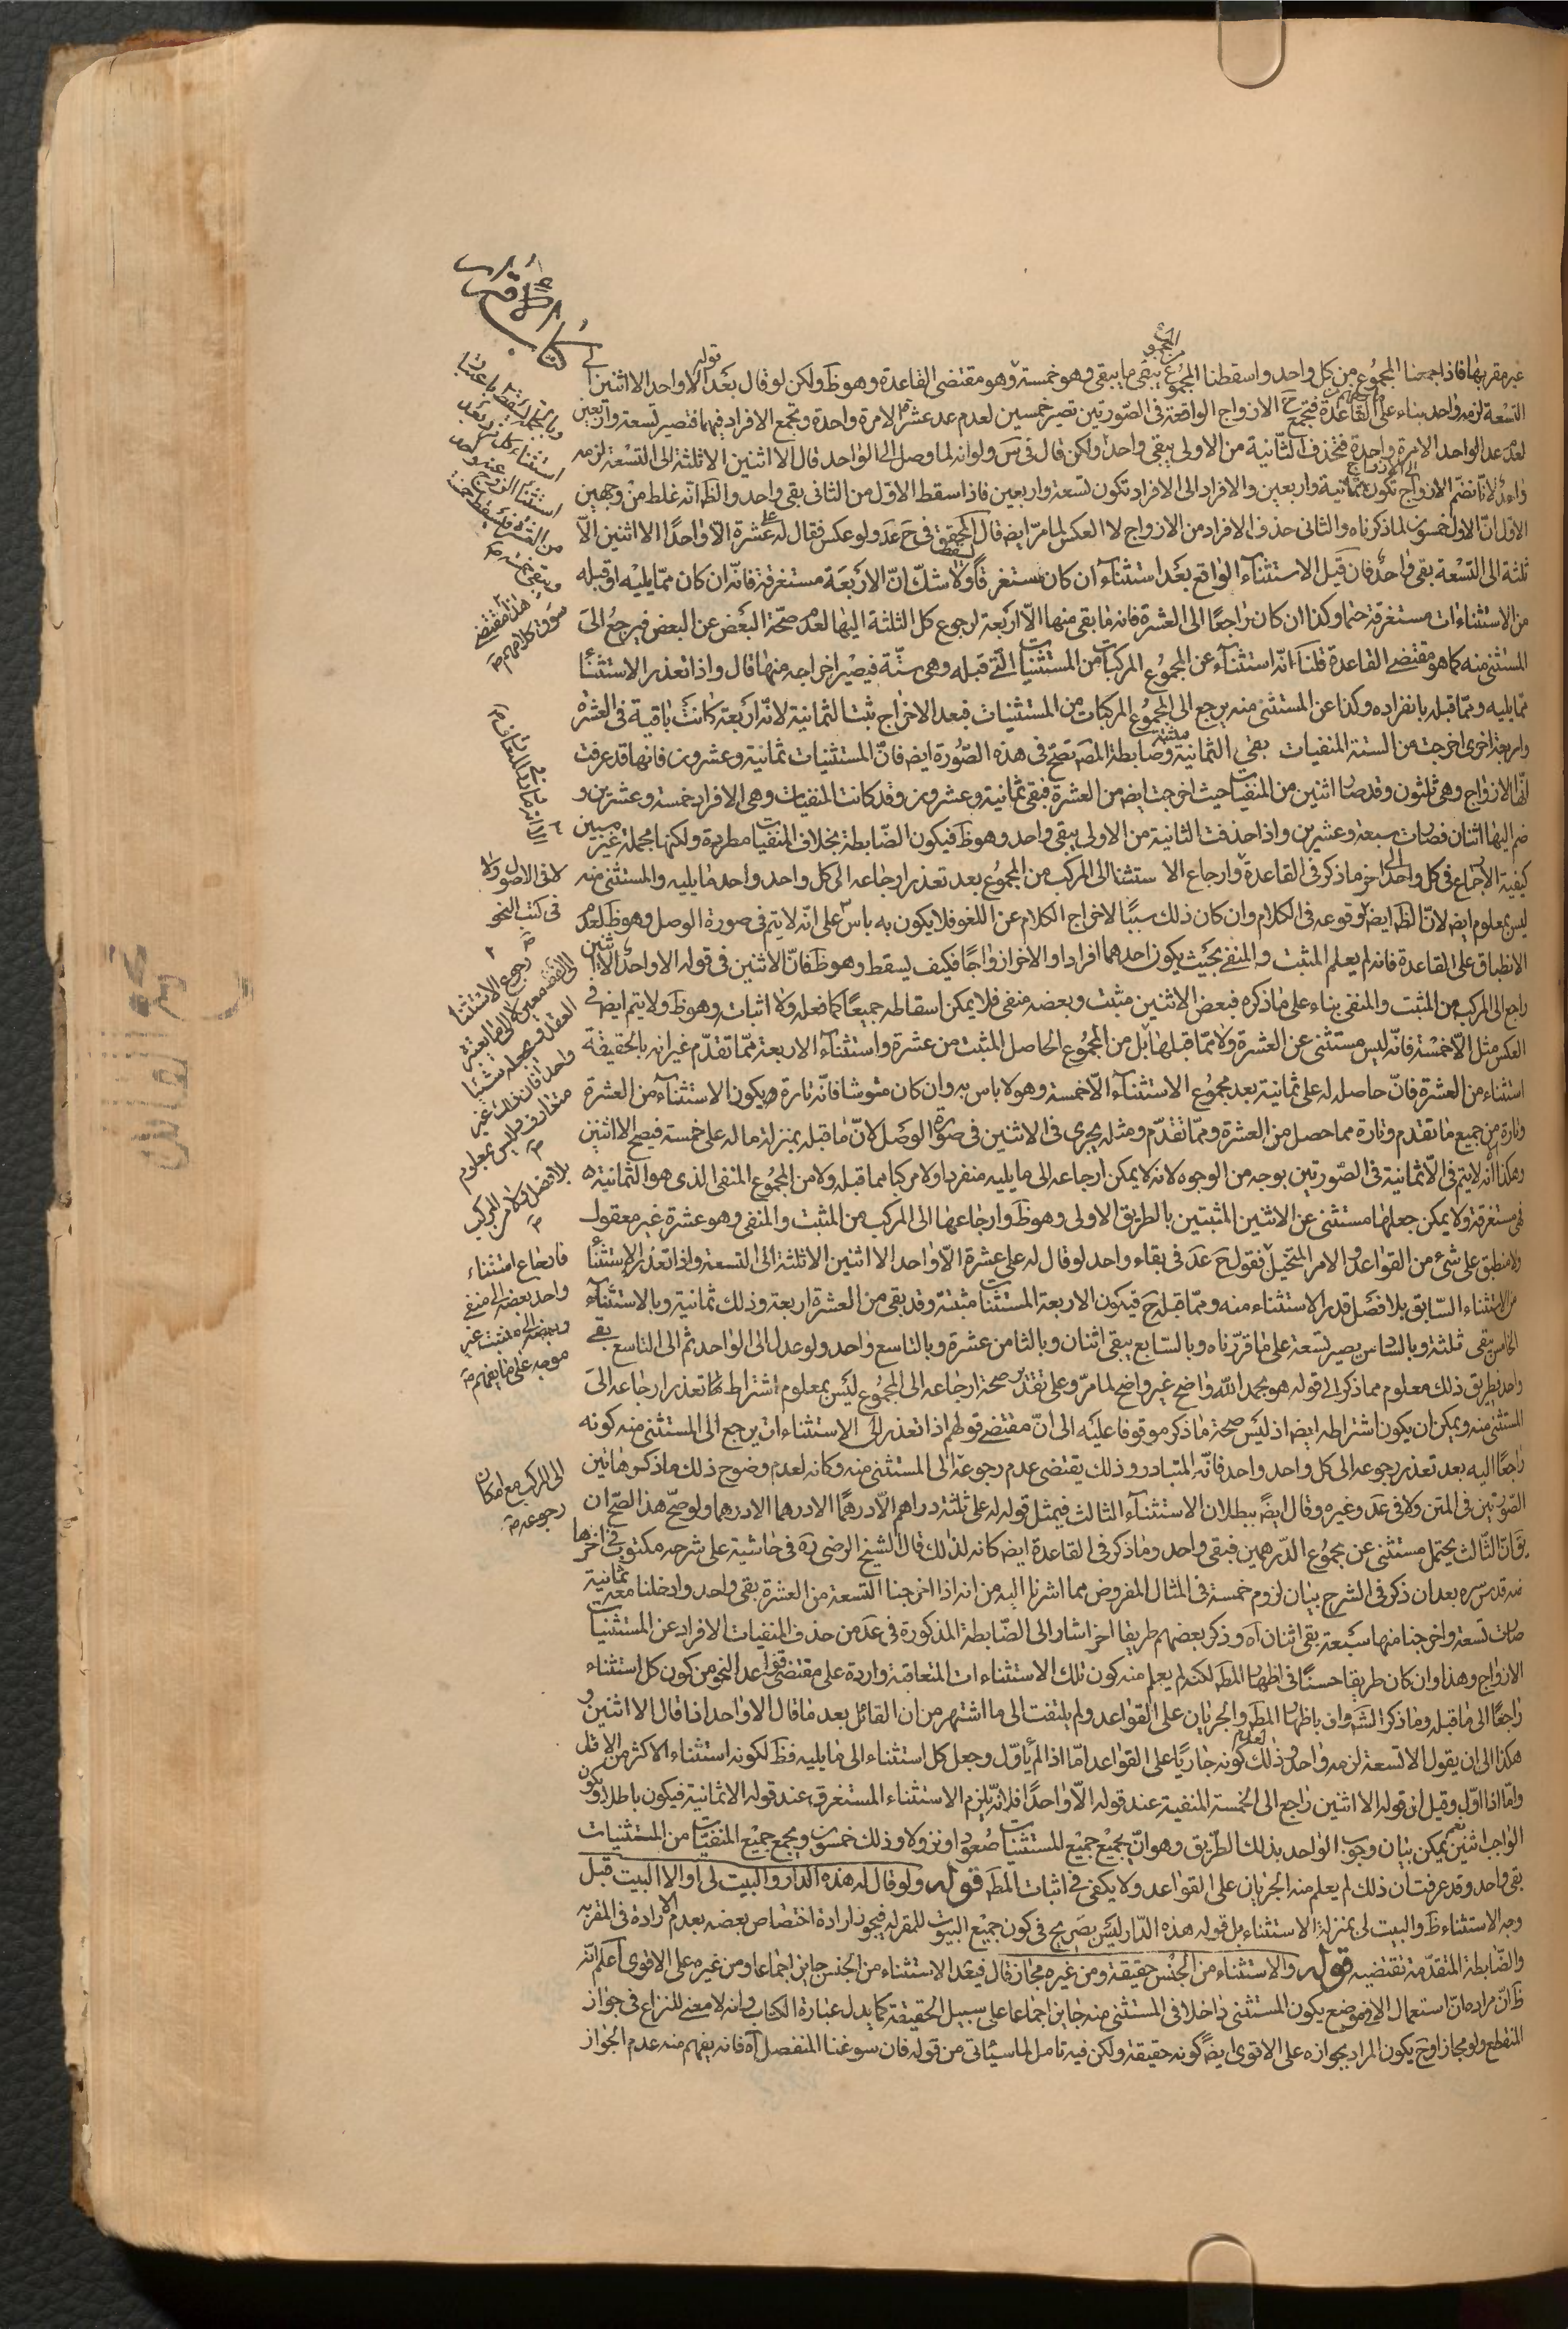 كتاب الاقرار
غير مقر بها فاذا جمعنا المجموع من كل واحد واسقطنا المجموع من المجموع يبقى ما يبقى وهو خمسة وهو مقتضى القاعدة وهو ظ ولكن لو قال بعد قوله الا واحد الا اثنين الى
التسعة لزمه واحد بناء على القاعدة فتجمع ح الازواج الواقعة في الصورتين تصير خمسين لعدم عد عشر الا مرة واحدة وتجمع الافراد فيهما فتصير تسعة واربعين
لعدم عد الواحد الا مرة واحدة فتحذف الثانية من الاولى يبقى واحد ولكن قال في س ولو انه لما وصل الى الواحد قال الا اثنين الا ثلثة الى التسعة لزمه
واحد لانا نضم الازواج الى الازواج تكون ثمانية واربعين والافراد الى الافراد تكون تسعة واربعين فاذا سقط الاول من الثاني بقى واحد والظ انه غلط من وجهين
الاول ان الاول خمسون لما ذكرناه والثاني حذف الافراد من الازواج لا العكس لما مر ايضا قال المحقق في ح عد ولو عكس فقال له على عشرة الا واحدًا الا اثنين الا
ثلثة الى التسعة بقى واحد فان قيل الاستثناء الواقع بعد استثناء ان كان مستغرقًا ولا شك ان الاربعة مستغرقة فانه ان كان مما يليه او قبله
من الاستثناءات مستغرقة حتما وكذا ان كان راجعًا الى العشرة فانه ما بقى منها الا اربعة لرجوع كل الثلثة اليها لعدم صحة البعض عن البعض فيرجع الى
المستثنى منه كما هو مقتضى القاعدة قلنا انه استثناء عن المجموع المركبات من المستثنيات التي قبله وهى ستة فيصير اخراجه منها قال واذا تعذر الاستثناء
مما يليه ومما قبله بانفراده وكذا عن المستثنى منه يرجع الى المجموع المركبات من المستثنيات فبعد الاخراج يثبت الثمانية لانه اربعة كانت باقية في العشرة
واربعة اخرى اخرجت من الستة المنفيات بقى الثمانية مثبتة وضابطة المص تصح في هذه الصورة ايضا فان المستثنيات ثمانية وعشرون فانها قد عرفت
انها الازواج وهى ثلثون وقد صار اثنين من المنفيات حيث اخرجت ايضا من العشرة فبقى ثمانية وعشرون وقد كانت المنفيات وهى الافراد خمسة وعشرين و
ضم اليها اثنان فصارت سبعة وعشرين واذا حذفت الثانية من الاولى يبقى واحد وهو ظ فيكون الضابطة بخلاف المنفيات مطردة ولكنها مجملة غير مبين
كيفية الارجاع في كل واحد الى اخر ما ذكر في القاعدة وارجاع الاستثنا الى المركب من المجموع بعد تعذر ارجاعه الى كل واحد واحد ما يليه والمستثنى منه
ليس بمعلوم ايضا لان الظ ايضا وقوعه في الكلام وان كان ذلك سببًا لاخراج الكلام عن اللغو فلا يكون به باس على انه لا يتم في صورة الوصل وهو ظ لعدم
الانطباق على القاعدة فانه لم يعلم المثبت والمنفى بحيث يكون احدهما افرادا والاخر ازواجًا فكيف يسقط وهو ظ فان الاثنين في قوله الا واحد الا اثنين
راجع الى المركب من المثبت والمنفى بناء على ما ذكره فبعض الاثنين مثبت وبعضه منفى فلا يمكن اسقاطه جميعًا كما فعله ولا اثبات وهو ظ ولا يتم ايضا في
العكس مثل الا خمسة فانه ليس مستثنى عن العشرة ولا مما قبلها بل من المجموع الحاصل المثبت من عشرة واستثناء الاربعة مما تقدم غير انه بالحقيقة
استثناء من العشرة فان حاصله له على ثمانية بعد مجموع الاستثناء الا خمسة وهو لا باس به وان كان مشوشا فانه تارة ويكون الاستثناء من العشرة
وتارة من جميع ما تقدم وتارة مما حصل من العشرة ومما تقدم ومثله يجرى في الاثنين في صورة الوصل لان ما قبله بمنزلة ما له على خمسة فيصح الا اثنين
وهكذا انه لا يتم في الا ثمانية في الصورتين بوجه من الوجوه لانه لا يمكن ارجاعه الى ما يليه منفردا ولا مركبا مما قبله ولا من المجموع المنفى الذى هو الثمانية
فهى مستغرقة ولا يمكن جعلها مستثنى عن الاثنين المثبتين بالطريق الاولى وهو ظ وارجاعها الى المركب من المثبت والمنفى وهو عشرة غير معقول
ولا منطبق على شىء من القواعد والامر المتخيل فقول ح عد في بقاء واحد لو قال له على عشرة الا واحد الا اثنين الا ثلثة الى التسعة واذا تعذر الاستثناء
من الاستثناء السابق بلا فصل قدر الاستثناء منه ومما قبله ح فيكون الاربعة المستثنيات مثبتة وقد بقى من العشرة اربعة وذلك ثمانية وبالاستثناء
الخامس يبقى ثلثة وبالسادس يصير تسعة على ما قررناه وبالسابع يبقى اثنان وبالثامن عشرة وبالتاسع واحد ولو عدل الى الواحد ثم الى التاسع بقى
واحد بطريق ذلك معلوم مما ذكر الى قوله هو بحمد الله واضح غير واضح لما مر وعلى تقدير صحة ارجاعه الى المجموع ليس بمعلوم اشتراط لما تعذر ارجاعه الى
المستثنى منه ويمكن ان يكون اشتراطه ايضا اذ ليس صحة ما ذكر موقوفا عليه الى ان مقتضى قولهم اذا تعذر الى الاستثناءات يرجع الى المستثنى منه كونه
راجعًا اليه بعد تعذر رجوعه الى كل واحد واحد فانه المتبادر وذلك يقتضى عدم رجوعه الى المستثنى منه وكانه لعدم وضوح ذلك ما ذكر هاتين
الصورتين في المتن ولا في عد وغيره وقال ايضًا ببطلان الاستثناء الثالث فيمثل قوله له على ثلثة دراهم الا درهمًا الا درهما الا درهما ولو صح هذا لصح ان
يق ان الثالث يحتمل مستثنى عن مجموع الدرهمين فبقى واحد وما ذكر في القاعدة ايضا كانه لذلك قال الشيخ الرضى ره في حاشية على شرحه مكتوب في اخرها
منه قدس سره بعد ان ذكر في الشرح بيان لزوم خمسة في المثال المفروض مما اشرنا اليه من انه اذا اخرجنا التسعة من العشرة بقى واحد وادخلنا معه ثمانية
صارت تسعة واخرجنا منها سبعة بقى اثنان اه وذكر بعضهم طريقا اخر اشار الى الضابطة المذكورة في عد من حذف المنفيات الافراد عن المستثنيات
الازواج وهذا وان كان طريقا حسنًا في اظهار المط لكنه لم يعلم منه كون تلك الاستثناءات المتعاقبة واردة على مقتضى قواعد النحو من كون كل استثناء
راجعًا الى ما قبله وما ذكر الش واف باظهار المط والجريان على القواعد ولم يلتفت الى ما اشتهر من ان القائل بعد ما قال الا واحد اذا قال الا اثنين و
هكذا الى ان يقول الا تسعة لزمه واحد وذلك لعدم كونه جاريًا على القواعد اما اذا لم ياول وجعل كل استثناء الى ما يليه فظ لكونه استثناء الاكثر من الاقل
واما اذا اول وقيل ان قوله الا اثنين راجع الى الخمسة المنفية عند قوله الا واحدًا فلانه يلزم الاستثناء المستغرق عند قوله الا ثمانية فيكون باطلا ويكون
الواجب اثنين نعم يمكن بيان وجوب الواحد بذلك الطريق وهو ان يجمع جميع المستثنيات صعودا ونزولا وذلك خمسون ويجمع جميع المنفيات من المستثنيات
بقى واحد وقد عرفت ان ذلك لم يعلم منه الجريان على القواعد ولا يكفى في اثبات المط قوله ولو قال له هذه الدار والبيت لى او الا البيت قبل
وجه الاستثناء ظ والبيت لى بمنزلة الاستثناء بل قوله هذه الدار ليس بصريح في كون جميع البيوت للمقر له فيجوز ارادة اختصاص بعضه بعدم الارادة في المقر به
والضابطة المتقدمة تقتضيه قوله والاستثناء من الجنس حقيقة ومن غيره مجاز قال فيعد الاستثناء من الجنس جايز اجماعا ومن غيره على الاقوى اعلم انه
ظ ان مراده ان استعمال الا في موضع يكون المستثنى داخلا في المستثنى منه جايز اجماعا على سبيل الحقيقة كما يدل عبارة الكتاب وانه لا معنى للنزاع في جواز
المنقطع ولو مجازا وح يكون المراد بجوازه على الاقوى ايضًا كونه حقيقة ولكن فيه تامل لما سياتى من قوله فان سوغنا المنفصل اه فانه يفهم منه عدم الجواز
لا في الاصول ولا
في كتب النحو
رجوع الاستثنا
واحدا فان ذلك غير
متعارف وليس بمعلوم
بلا فصل ولا من المركب
فارجاع استثناء
واحد بعضه الى منفى
وبعضه الى مثبت غير
موجه على ما يفهم
الى المركب مع امكان
رجوعه